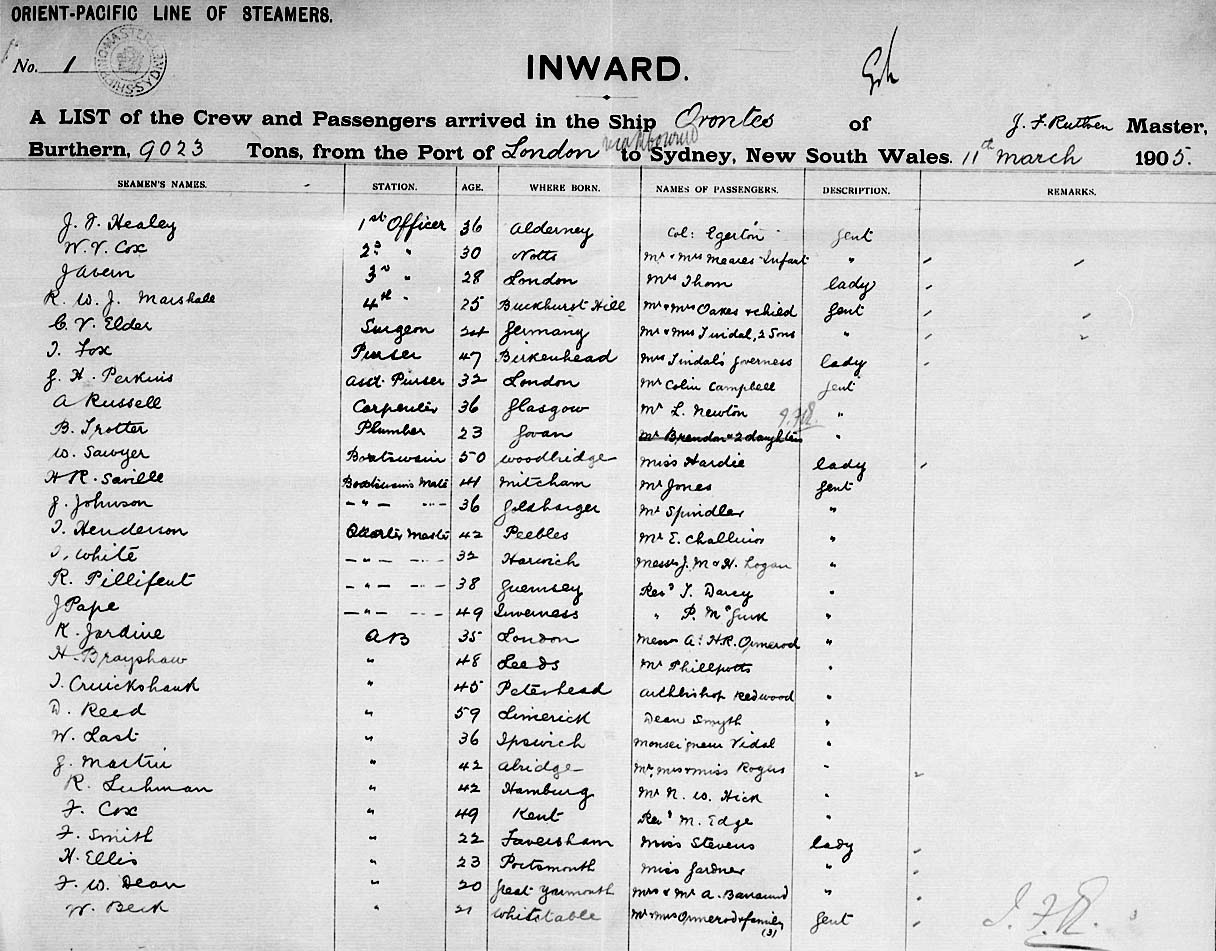 ORIENT-PACIFIC LINE OF STEAMERS.
No. 1
INWARD.
A LIST of the Crew and Passengers arrived in the Ship Orontes of J. F. Ruthven Master,
Burthern, 9023 Tons, from the Port of London to Sydney, New South Wales. 11th March 1905.
SEAMEN'S NAMES. STATION. AGE. WHERE BORN. NAMES OF PASSENGERS. DESCRIPTION. REMARKS.
J. F. Healey 1st Officer 36 Alderney Col: Egerton gent
W. V. Cox 2d " 30 Notts Mr & Mrs Meares Infant "
J Avern 3rd " 28 London Mrs Thom lady
R. W. J. Marshall 4th " 25 Buckhurst Hill Mr & Mrs Oakes & child gent
C. V. Elder Surgeon 24 Germany Mr & Mrs Tindal, 2 Sons "
T. Fox Purser 47 Birkenhead Mrs Tindal's governess lady
G. H. Perkins Asst. Purser 32 London Mr Colin Campbell gent
A Russell Carpenter 36 Glasgow Mr L. Newton "
B. Trotter Plumber 23 Govan Mr Brendon & 2 daughters "
W. Sawyer Boatswain 50 Woodbridge Miss Hardie lady
H R. Saville Boatswain's Mate 41 Mitcham Mr Jones gent
J. Johnson " 36 Mr Spindler "
T. Henderson Quarter Master 42 Peebles Mr E. Challinor "
T. White " 32 Harwich Messrs J. M & H. Logan "
R. Pillifent " 38 Guernsey Revd T. Darcy "
J Pape " 49 Inverness " P. McGurk "
K. Jardine AB 35 London Messrs A: H.R. Ormerod "
H. Brayshaw " 48 Leeds Mr Phillpotts "
T. Cruickshank " 45 Peterhead Archbishop Redwood "
D. Reed " 59 Limerick Dean Smyth "
W. Last " 36 Ipswich Monseigneur Vidal "
G. Martin " 42 Abridge Mr, Mrs & Miss Rogers "
R. Luhman " 42 Hamburg Mr N. W. Hick "
F. Cox " 49 Kent Revd M. Edge "
F. Smith " 22 Faversham Miss Stevens lady
H. Ellis " 23 Portsmouth Miss Gardner "
F. W. Dean " 20 Great Yarmouth Mrs & Mr A. "
W. Beck " 21 Whitstable Mr Mrs Ormerod & family (3) gent